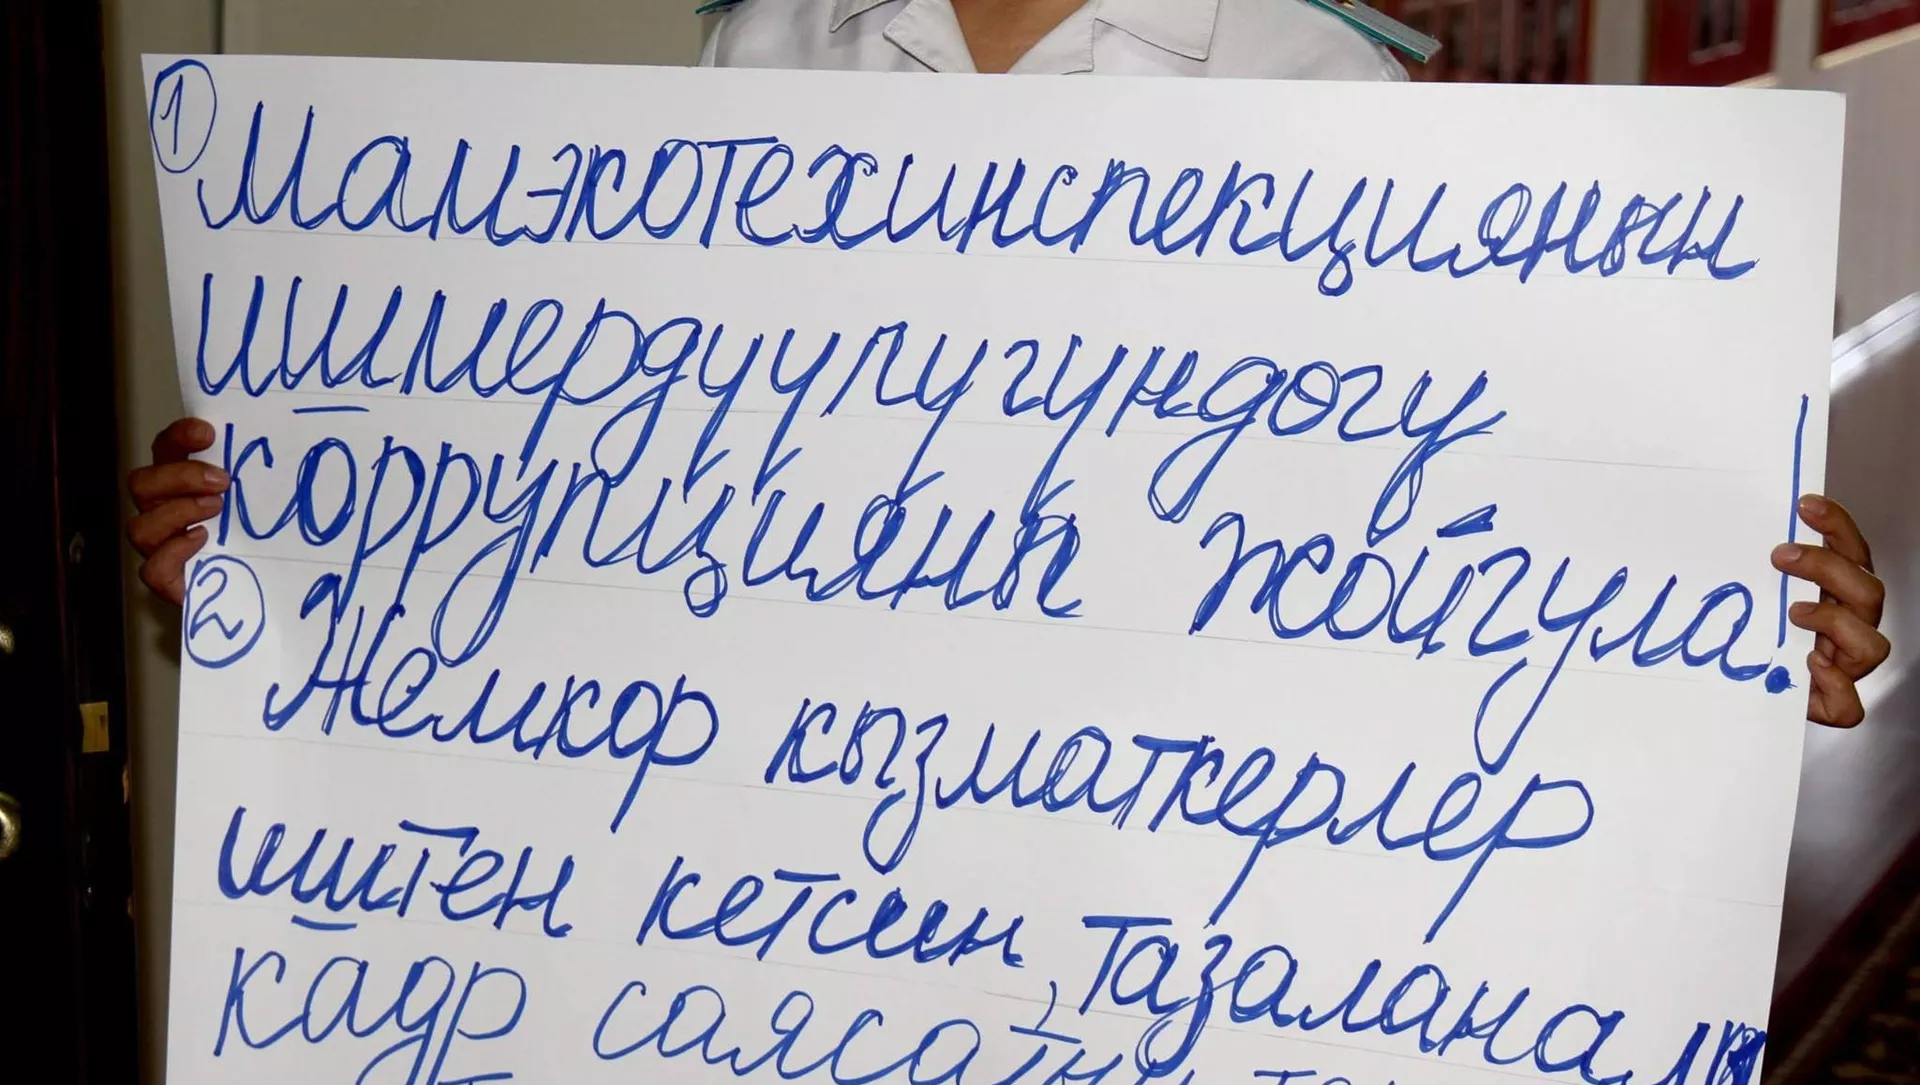 ① Мамэкотехинспекциянын
ишмердүүлүгүндөгү
коррупцияны жойгула!
② Жемкор кызматкерлер
иштен кетсин, тазаланалы
кадр саясаты